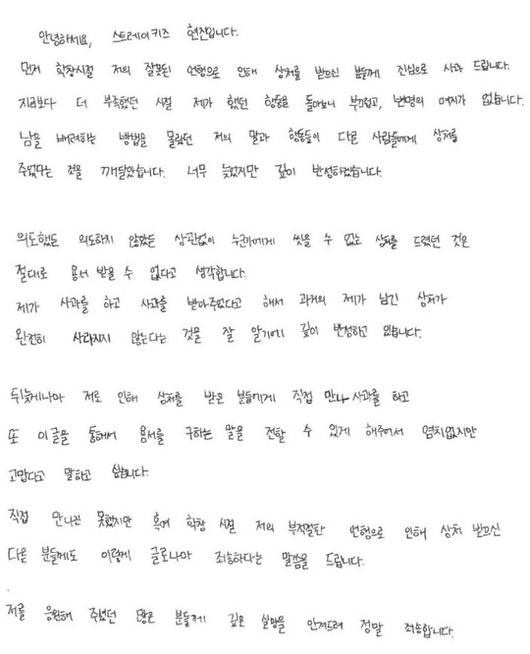 안녕하세요, 스트레이키즈 현진입니다.
먼저 학창시절 저의 잘못된 언행으로 인해 상처를 받으신 분들께 진심으로 사과 드립니다.
지금보다 더 부족했던 시절 제가 했던 행동을 돌아보니 부끄럽고, 변명의 여지가 없습니다.
남을 배려하는 방법을 몰랐던 저의 말과 행동들이 다른 사람들에게 상처를
주었다는 것을 깨달았습니다. 너무 늦었지만 깊이 반성하겠습니다.
의도했든 의도하지 않았든 상관없이 누군가에게 씻을 수 없는 상처를 드렸던 것은
절대로 용서 받을 수 없다고 생각합니다.
제가 사과를 하고 사과를 받아주었다고 해서 과거의 제가 남긴 상처가
완전히 사라지지 않는다는 것을 잘 알기에 깊이 반성하고 있습니다.
뒤늦게나마 저로 인해 상처를 받은 분들에게 직접 만나 사과를 하고
또 이 글을 통해서 용서를 구하는 말을 전할 수 있게 해주어서 염치없지만
고맙다고 말하고 싶습니다.
직접 만나진 못했지만 혹여 학창 시절 저의 부적절한 언행으로 인해 상처 받으신
다른 분들께도 이렇게 글로나마 죄송하다는 말씀을 드립니다.
저를 응원해 주셨던 많은 분들께 깊은 실망을 안겨드려 정말 죄송합니다.